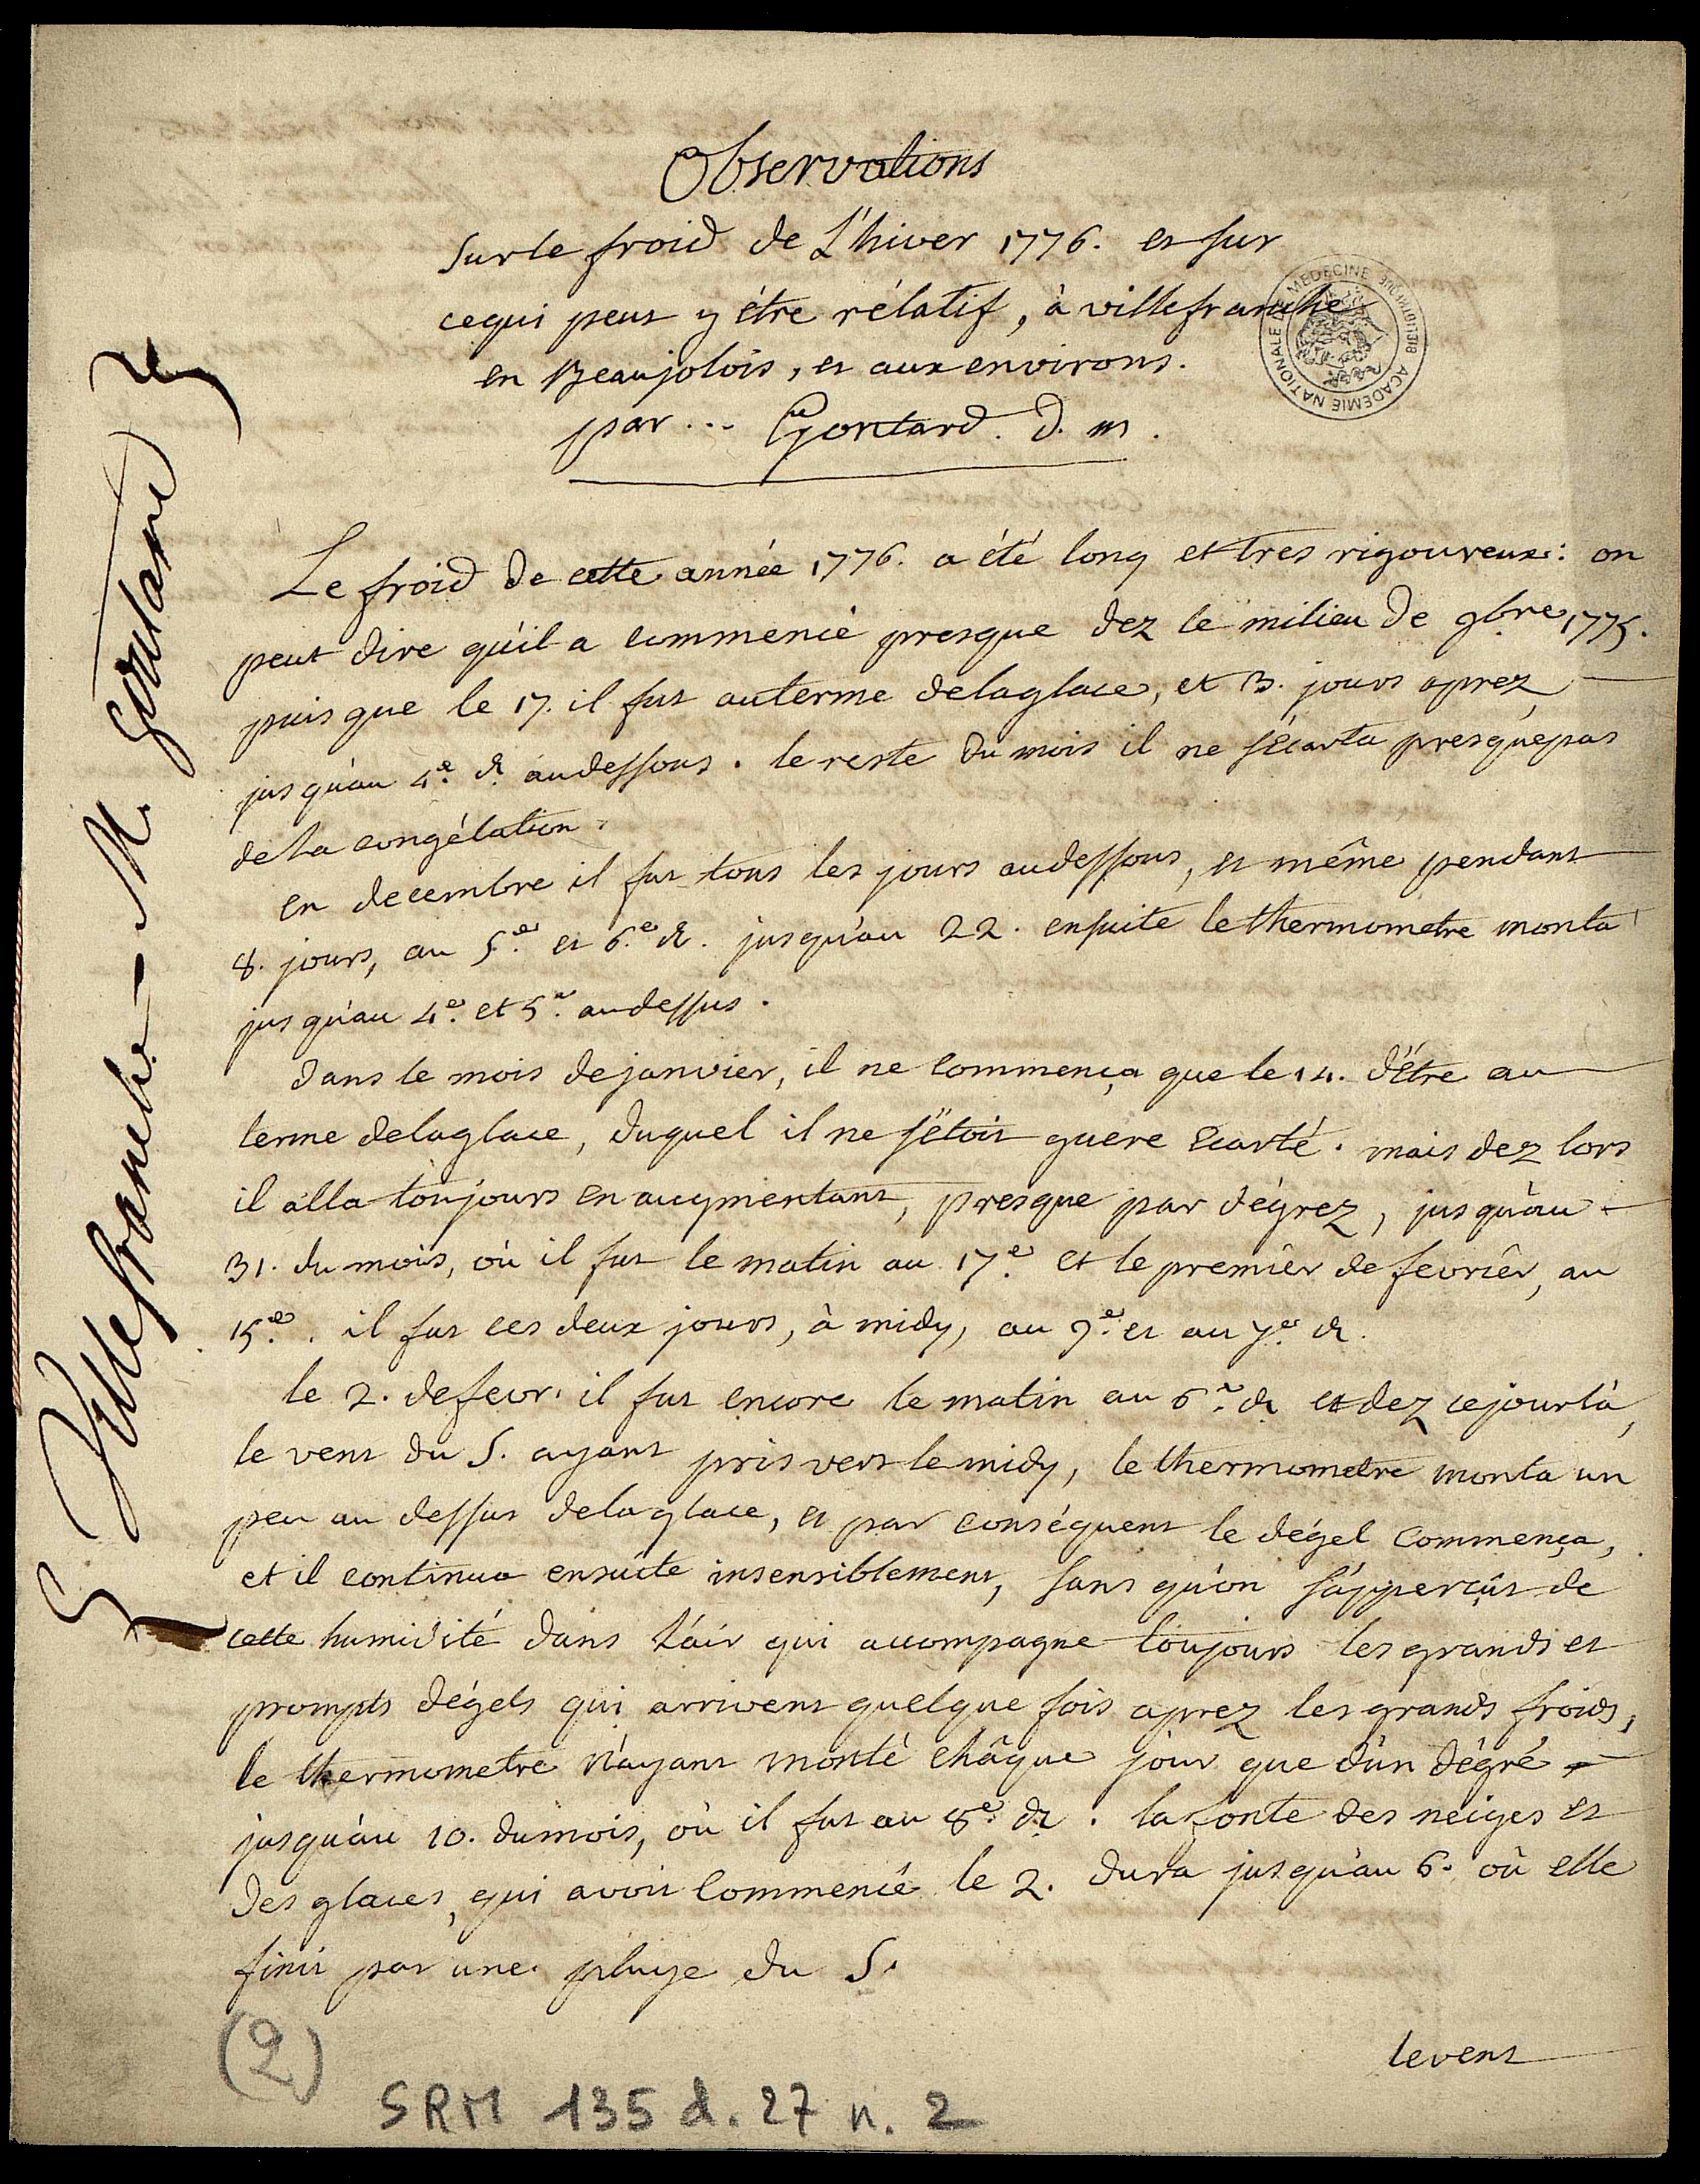 Observations
sur le froid de L'hiver 1776. et sur
cequi peut y être rélatif, à villefranche
en Beaujolois, et aux environs.
par... Gontard. d. m.
BIBLIOTHEQUE ACADEMIE NATIONALE DE MEDECINE
Villefranche - M. Gontard
Le froid de cette année 1776. a été long et tres rigoureux: on
peut dire qu'il a commencé presque dez le milieu de 9bre 1775.
puis que le 17. il fut au terme delaglace, et 3. jours aprez
jusqu'au 4e. d. audessous. le reste du mois il ne s'écarta presquepas
de la congélation.
en decembre il fut tous les jours audessous, et même pendant
8. jours, au 5e. et 6e. d. jusqu'au 22. ensuite le thermometre monta
jusqu'au 4e. et 5e. audessus.
dans le mois de janvier, il ne commença que le 14. d'être au
terme delaglace, duquel il ne s'étoit guere écarté. mais dez lors
il alla toujours en augmentant, presque par dégrez, jusqu'au
31. du mois, où il fut le matin au 17e. et le premiêr de fevriêr, au
15e. il fut ces deux jours, à midy, au 9e. et au 7e. d.
le 2. de fevr. il fut encore le matin au 6e. d. et dez cejourlà,
le vent du S. ayant pris vers le midy, le thermometre monta un
peu au dessus delaglace, et par conséquent le dégel commença,
et il continua ensuite insensiblement, sans qu'on s'apperçût de
cette humidité dans l'air qui accompagne toujours les grands et
prompts dégels qui arrivent quelque fois aprez les grands froids,
le thermometre n'ayant monté châque jour que d'un dégré
jusqu'au 10. dumois, où il fut au 8e. d. la fonte des neiges et
des glaces, qui avoit commencé le 2. dura jusqu'au 6. où elle
finit par une pluye du S.
levent
(2)
SRM 135 d. 27 n. 2